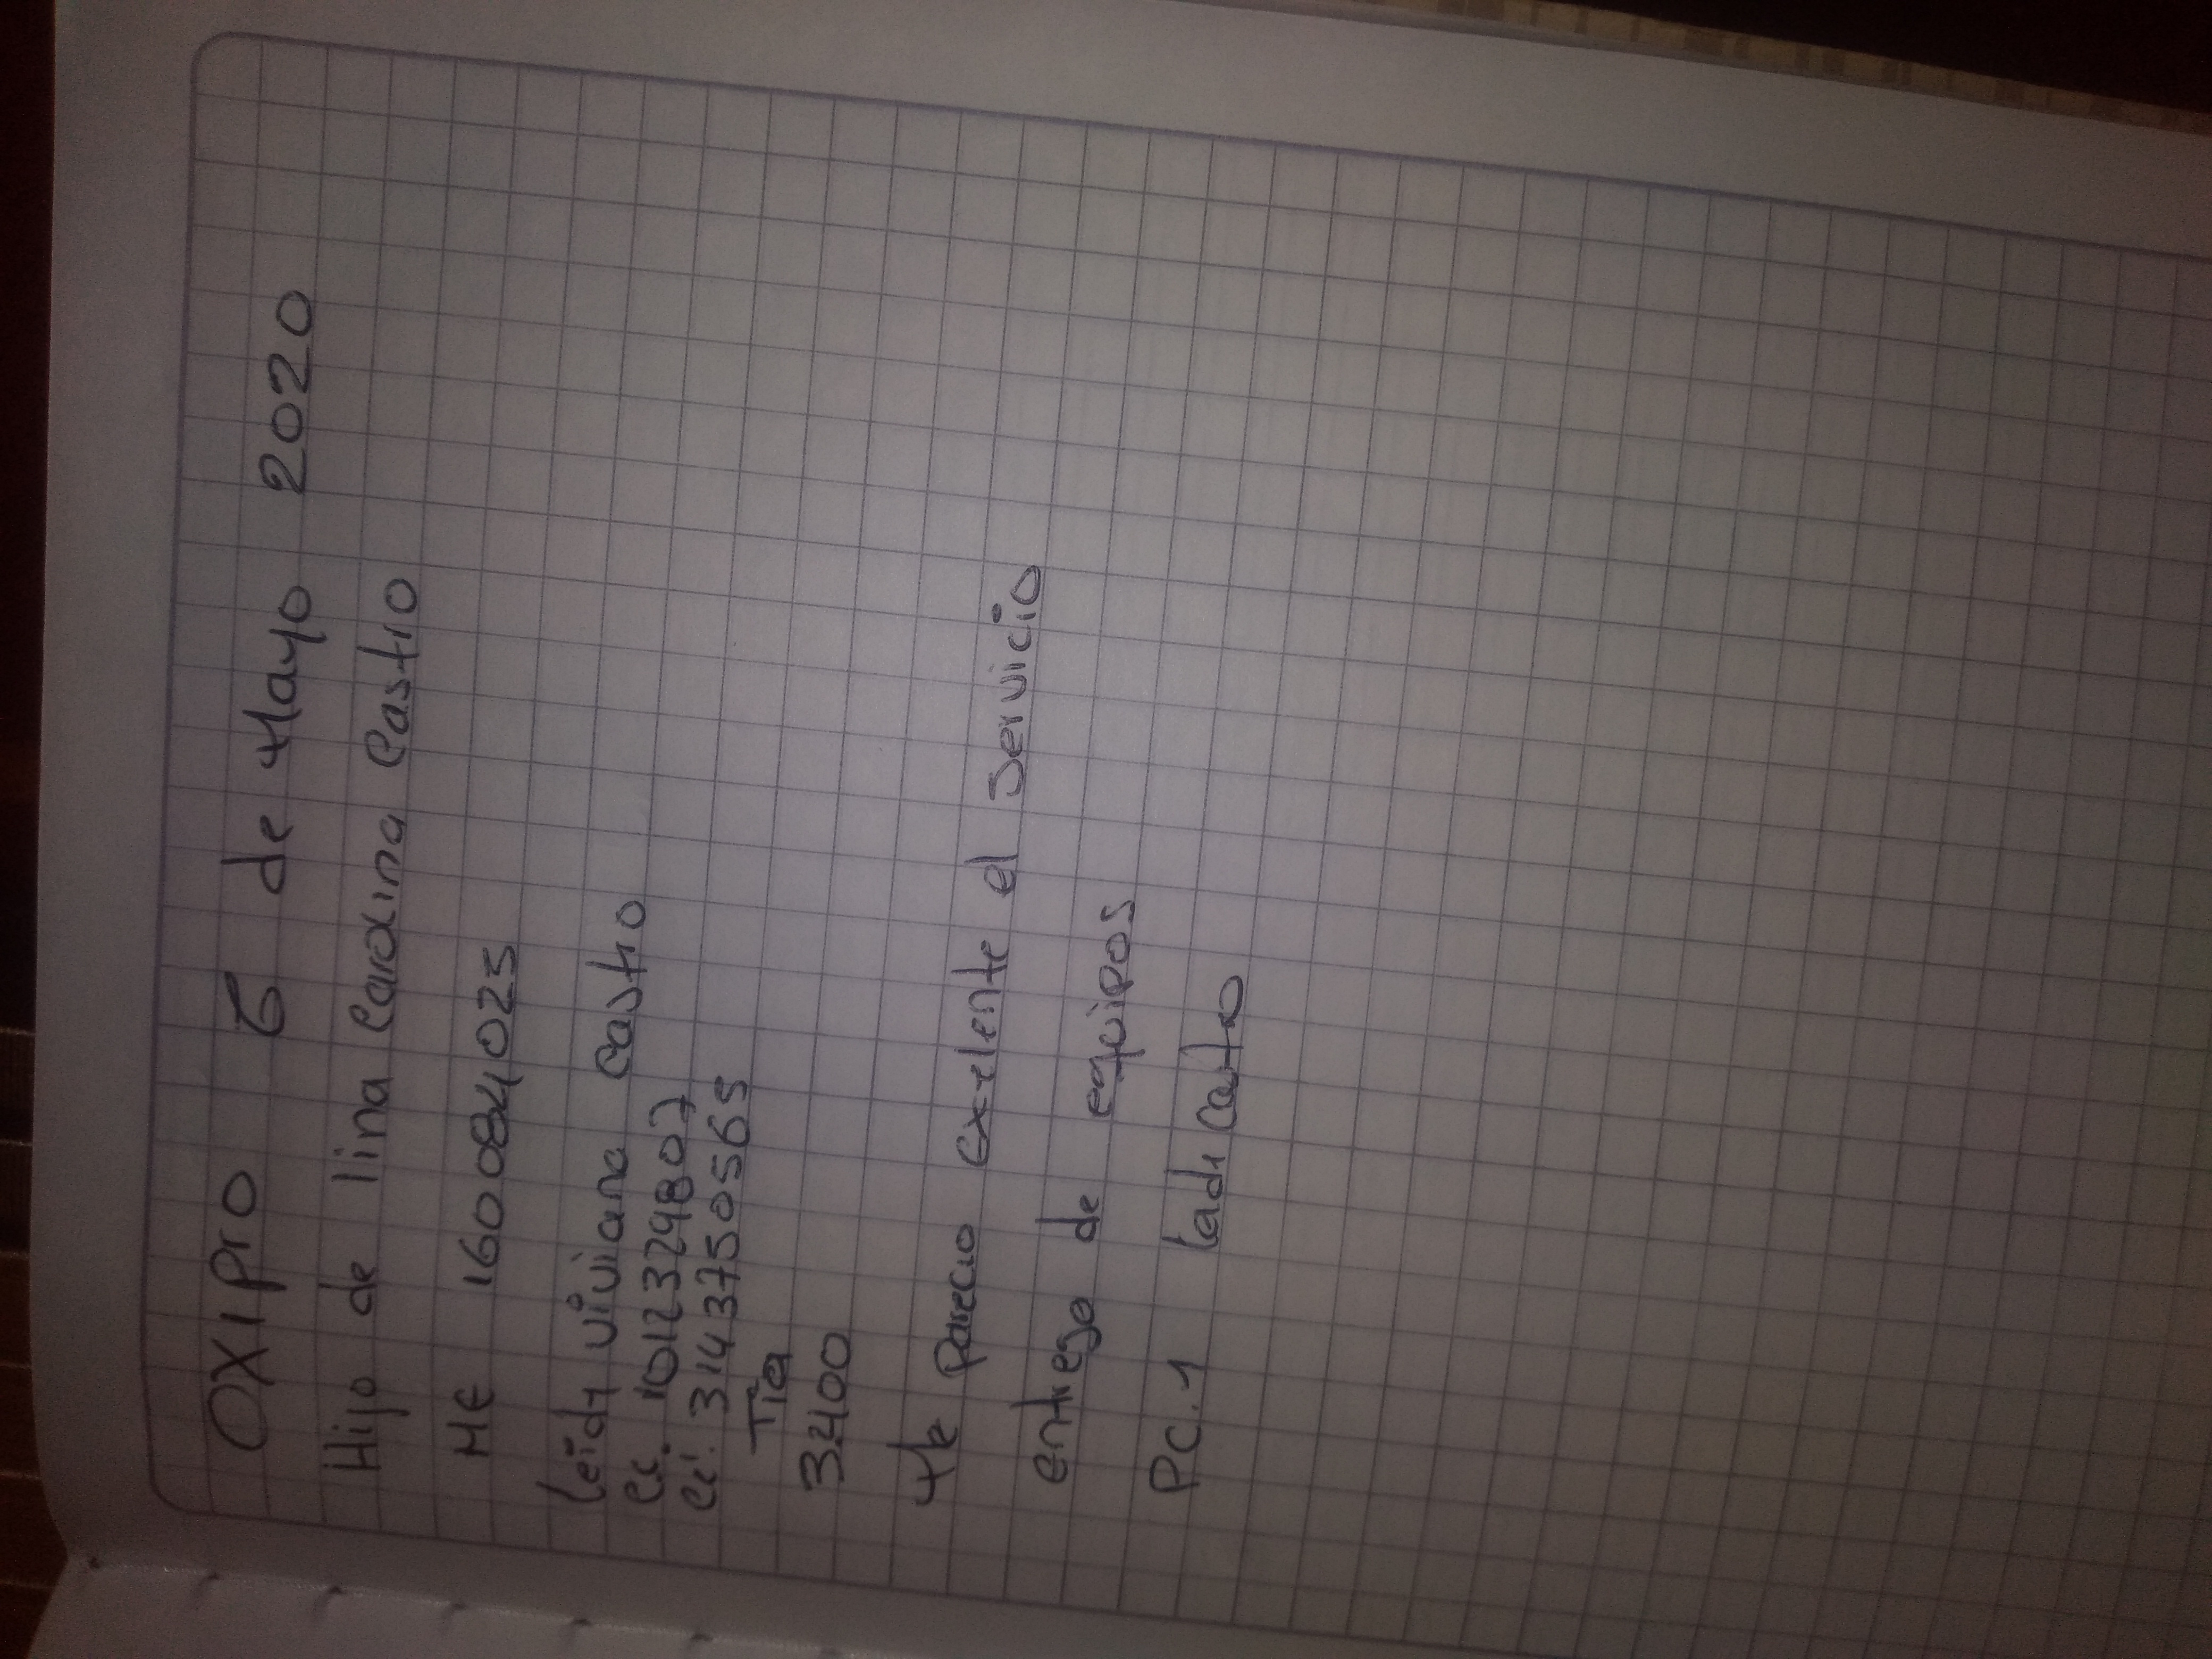 OXIPro 6 de Mayo 2020
Hijo de lina Carolina Castro
ME 160084023
leidi viviana Castro
Cc. 1012329807
Cel. 3143750565
Tia
3.400
Me Parecio exelente el Servicio
entrega de equipos
PC. 1 ladi Castro